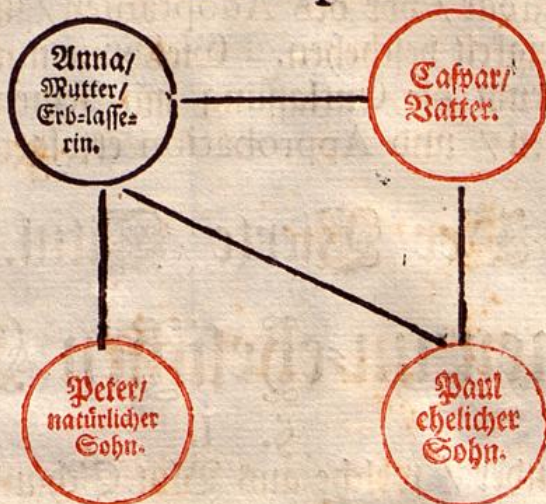 Anna/
Mutter/
Erb-lasse-
rin.
Caspar/
Vatter.
Peter/
natürlicher
Sohn.
Paul
ehelicher
Sohn.